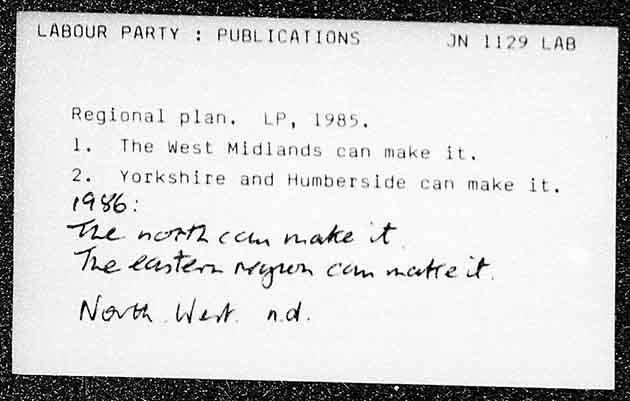 LABOUR PARTY : PUBLICATIONS JN 1129 LAB
Regional plan. LP, 1985.
1. The West Midlands can make it.
2. Yorkshire and Humberside can make it.
1986:
The north can make it.
The eastern region can make it.
North West. n.d.